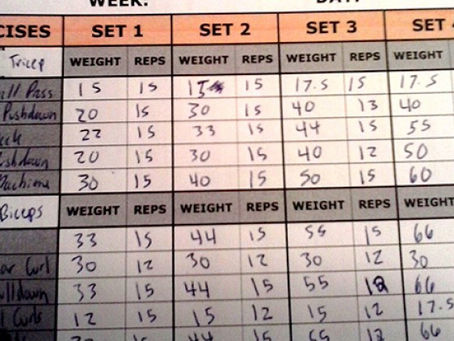 WEEK: DAY:
CISES SET 1 SET 2 SET 3 SET
Tricep WEIGHT REPS WEIGHT REPS WEIGHT REPS WEIGHT
15 15 15 15 17.5 15 17.5
Pushdown 20 15 30 15 40 13 40
22 15 33 15 44 15 55
shdown 20 15 30 15 40 12 50
Machine 30 15 40 15 50 15 60
Biceps WEIGHT REPS WEIGHT REPS WEIGHT REPS WEIGHT
33 15 44 15 55 15 66
Curl 30 12 30 12 30 12 30
lldown 33 15 44 15 55 12 66
Curls 12 15 15 12 15 12 17.5
44 15 12 66